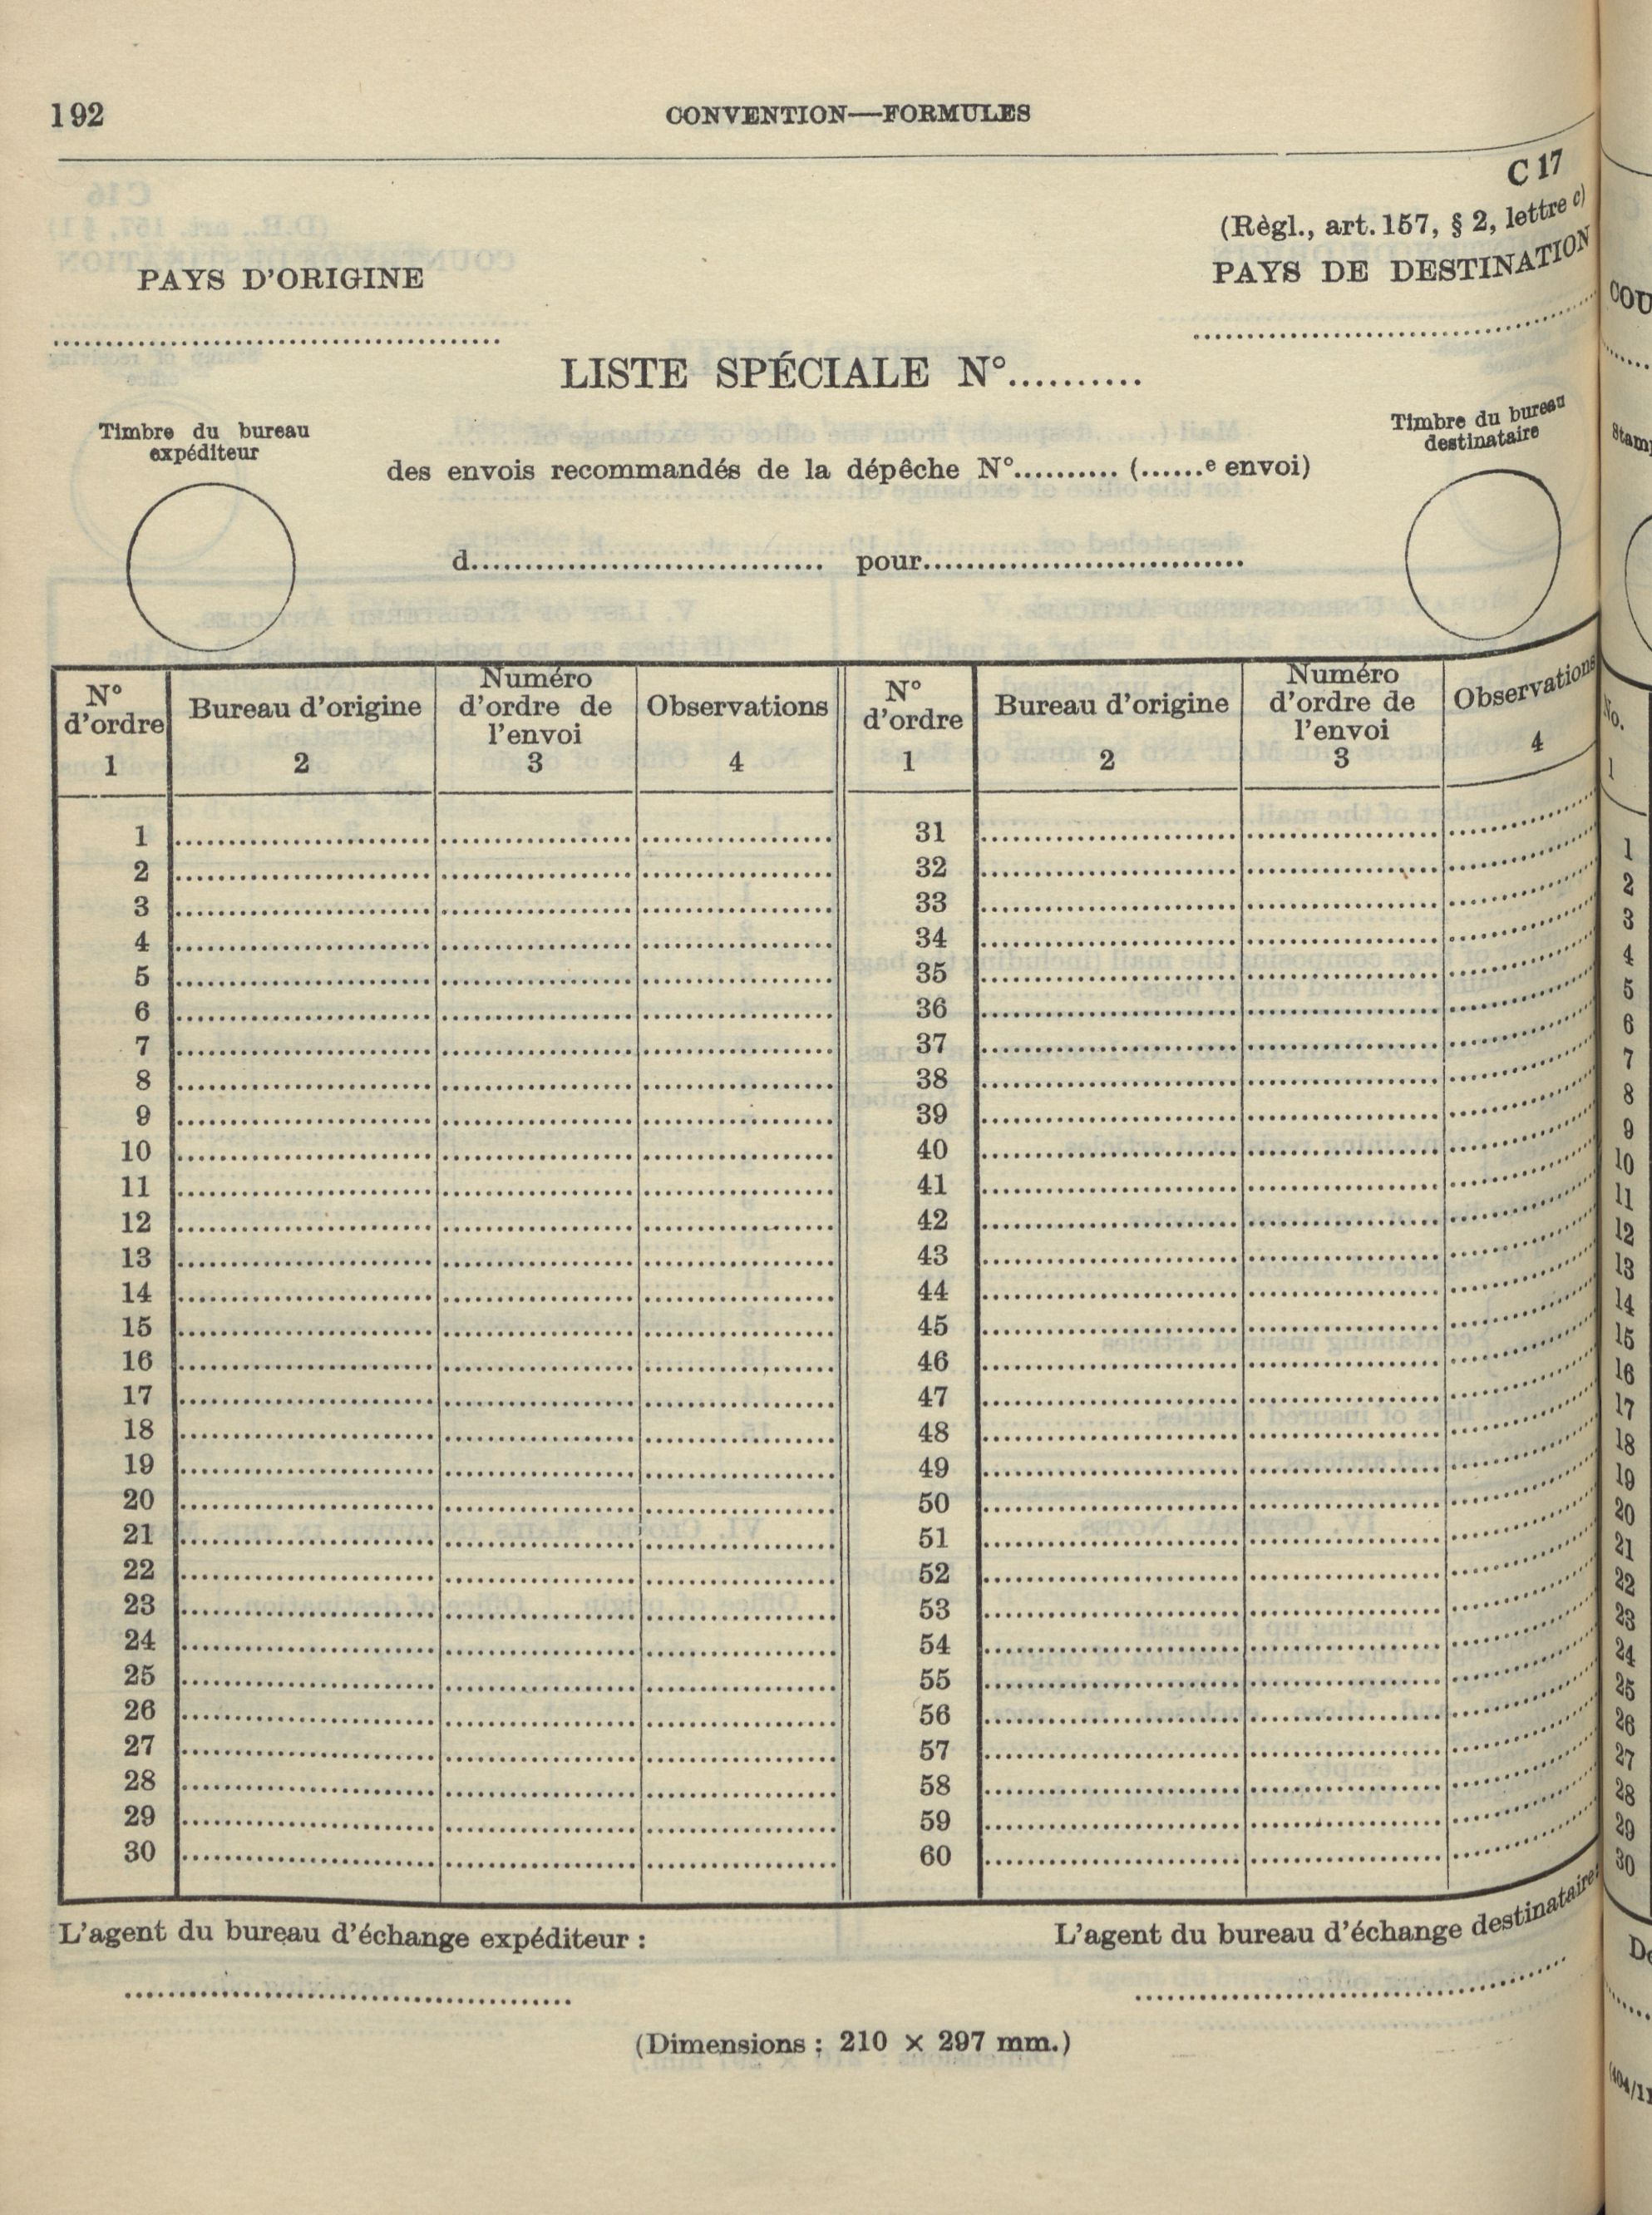 192 CONVENTION—FORMULES
C 17
(Règl., art. 157, § 2, lettre c)
PAYS D'ORIGINE PAYS DE DESTINATION
........................................ ........................................
LISTE SPÉCIALE N°..........
Timbre du bureau expéditeur
Timbre du bureau destinataire
des envois recommandés de la dépêche N°.......... (......e envoi)
d................................ pour.............................
N° d'ordre Bureau d'origine Numéro d'ordre de l'envoi Observations N° d'ordre Bureau d'origine Numéro d'ordre de l'envoi Observations
1 2 3 4 1 2 3 4
1 31
2 32
3 33
4 34
5 35
6 36
7 37
8 38
9 39
10 40
11 41
12 42
13 43
14 44
15 45
16 46
17 47
18 48
19 49
20 50
21 51
22 52
23 53
24 54
25 55
26 56
27 57
28 58
29 59
30 60
L'agent du bureau d'échange expéditeur : L'agent du bureau d'échange destinataire:
........................................ ........................................
(Dimensions : 210 × 297 mm.)
No.
1
1
2
3
4
5
6
7
8
9
10
11
12
13
14
15
16
17
18
19
20
21
22
23
24
25
26
27
28
29
30